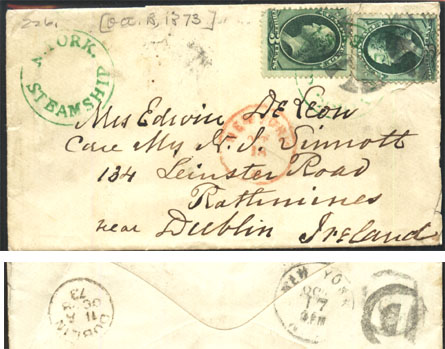 226.
[Oct. 13, 1873]
N. YORK.
STEAMSHIP
NEW YORK
Mrs Edwin De Leon
Care My N. S. Sinnott
134 Leinster Road
Rathmines
near Dublin Ireland
DUBLIN
73
NEW YORK
17
D